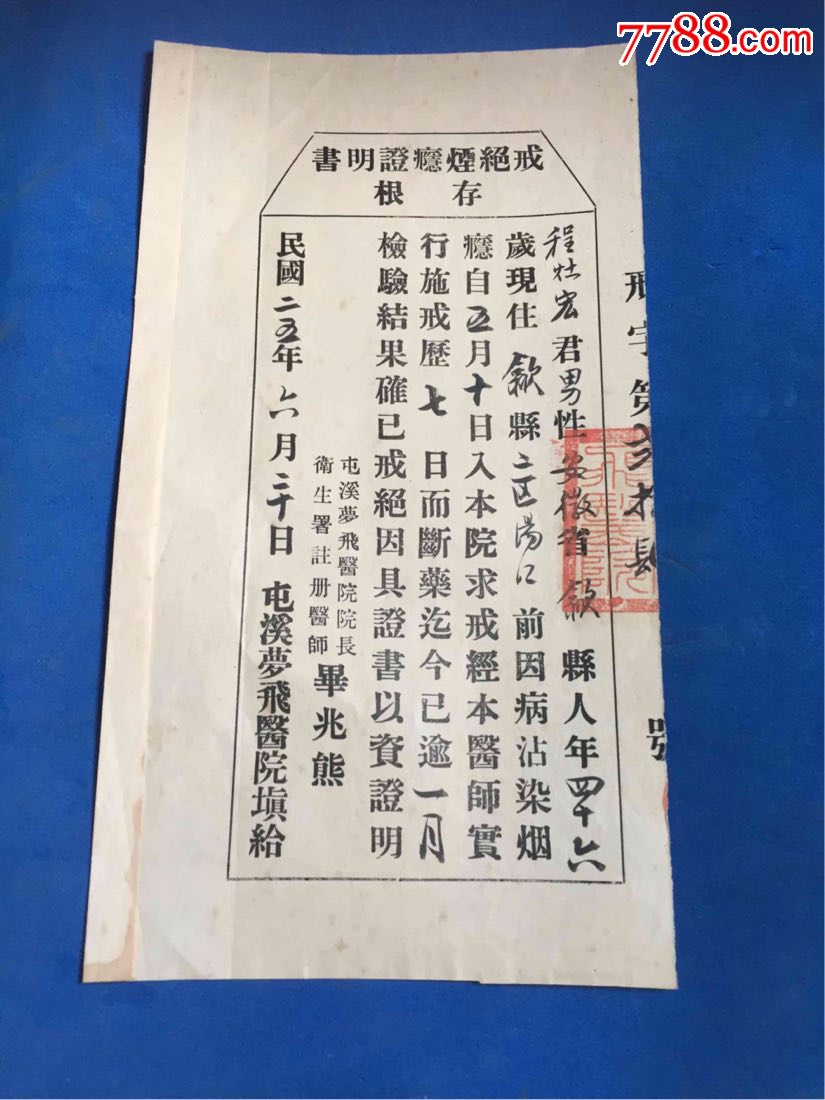 7788.com
戒絕煙癮證明書
存根
字第弍拾 號
程 宏君男性安徽省歙縣人年四十六
歲現住歙縣二区湯口前因病沾染烟
癮自五月十日入本院求戒經本醫師實
行施戒歷七日而斷藥迄今已逾一月
檢驗結果確已戒絕因具證書以資證明
屯溪夢飛醫院院長
衛生署註册醫師
畢兆熊
民國二五年六月二十日 屯溪夢飛醫院塡給